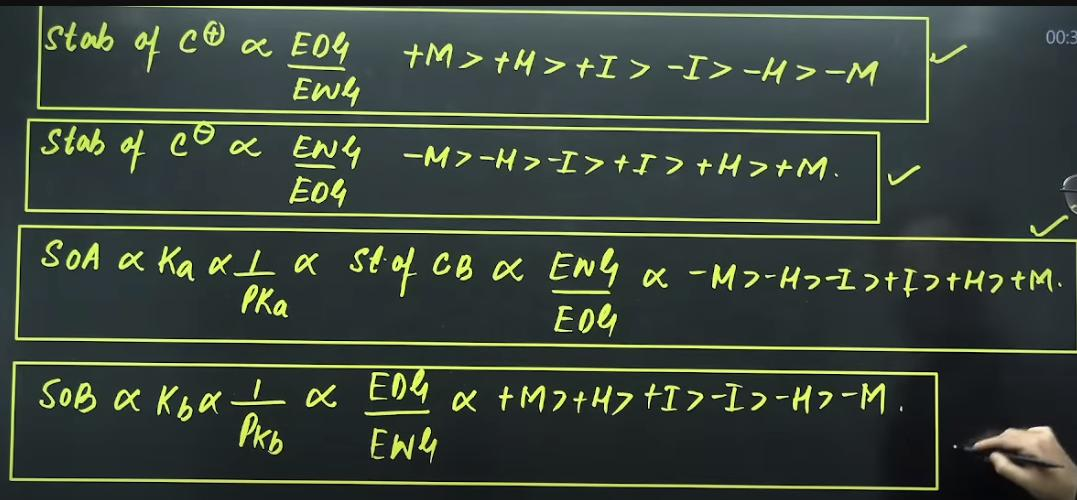 Stab of C⊕ ∝ EDG/EWG +M > +H > +I > -I > -H > -M
00:3
Stab of C⊖ ∝ EWG/EDG -M > -H > -I > +I > +H > +M.
SoA ∝ Ka ∝ 1/PKa ∝ St. of CB ∝ EWG/EDG ∝ -M > -H > -I > +I > +H > +M.
SoB ∝ Kb ∝ 1/PKb ∝ EDG/EWG ∝ +M > +H > +I > -I > -H > -M.